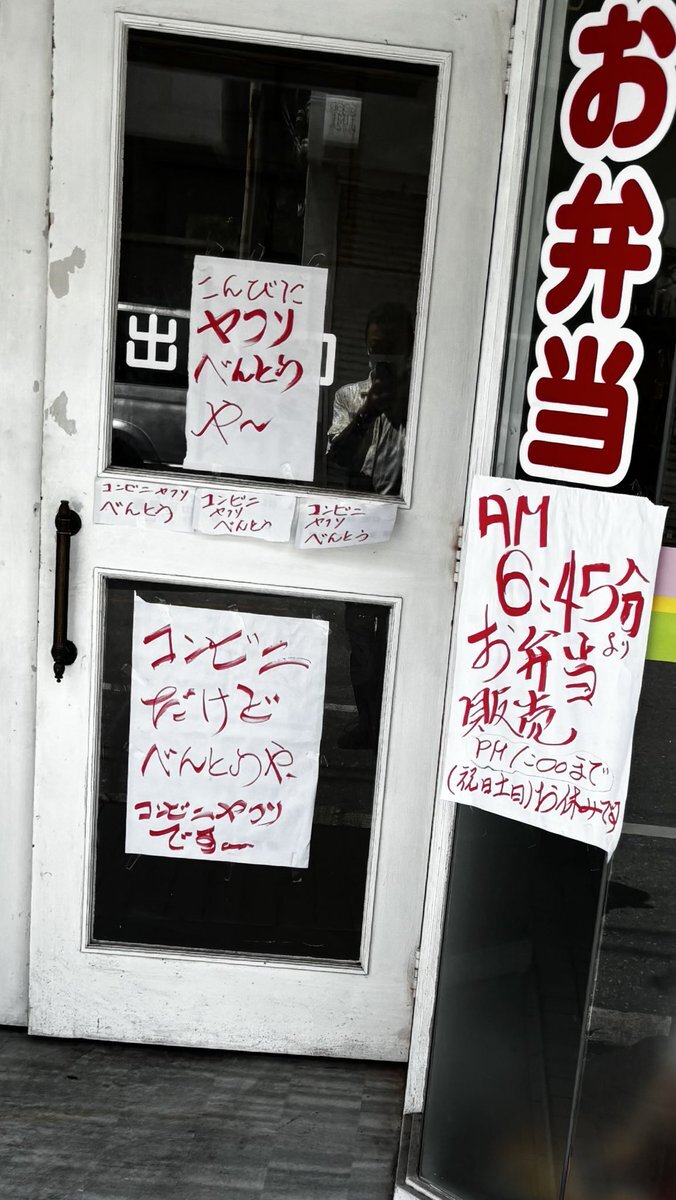 こんびに
ヤフリ
べんとう
や〜
出
コンビニヤフリ
べんとう
コンビニ
ヤフリ
べんとう
コンビニ
ヤフリ
べんとう
コンビニ
だけど
べんとうや、
コンビニヤフリ
です
お弁当
AM
6:45分
より
お弁当
販売
PM1:00まで
(祝日土日)お休みです